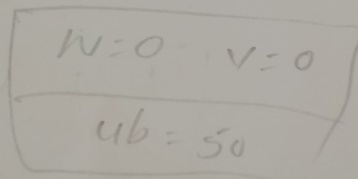 W=0 V=0
ub=50